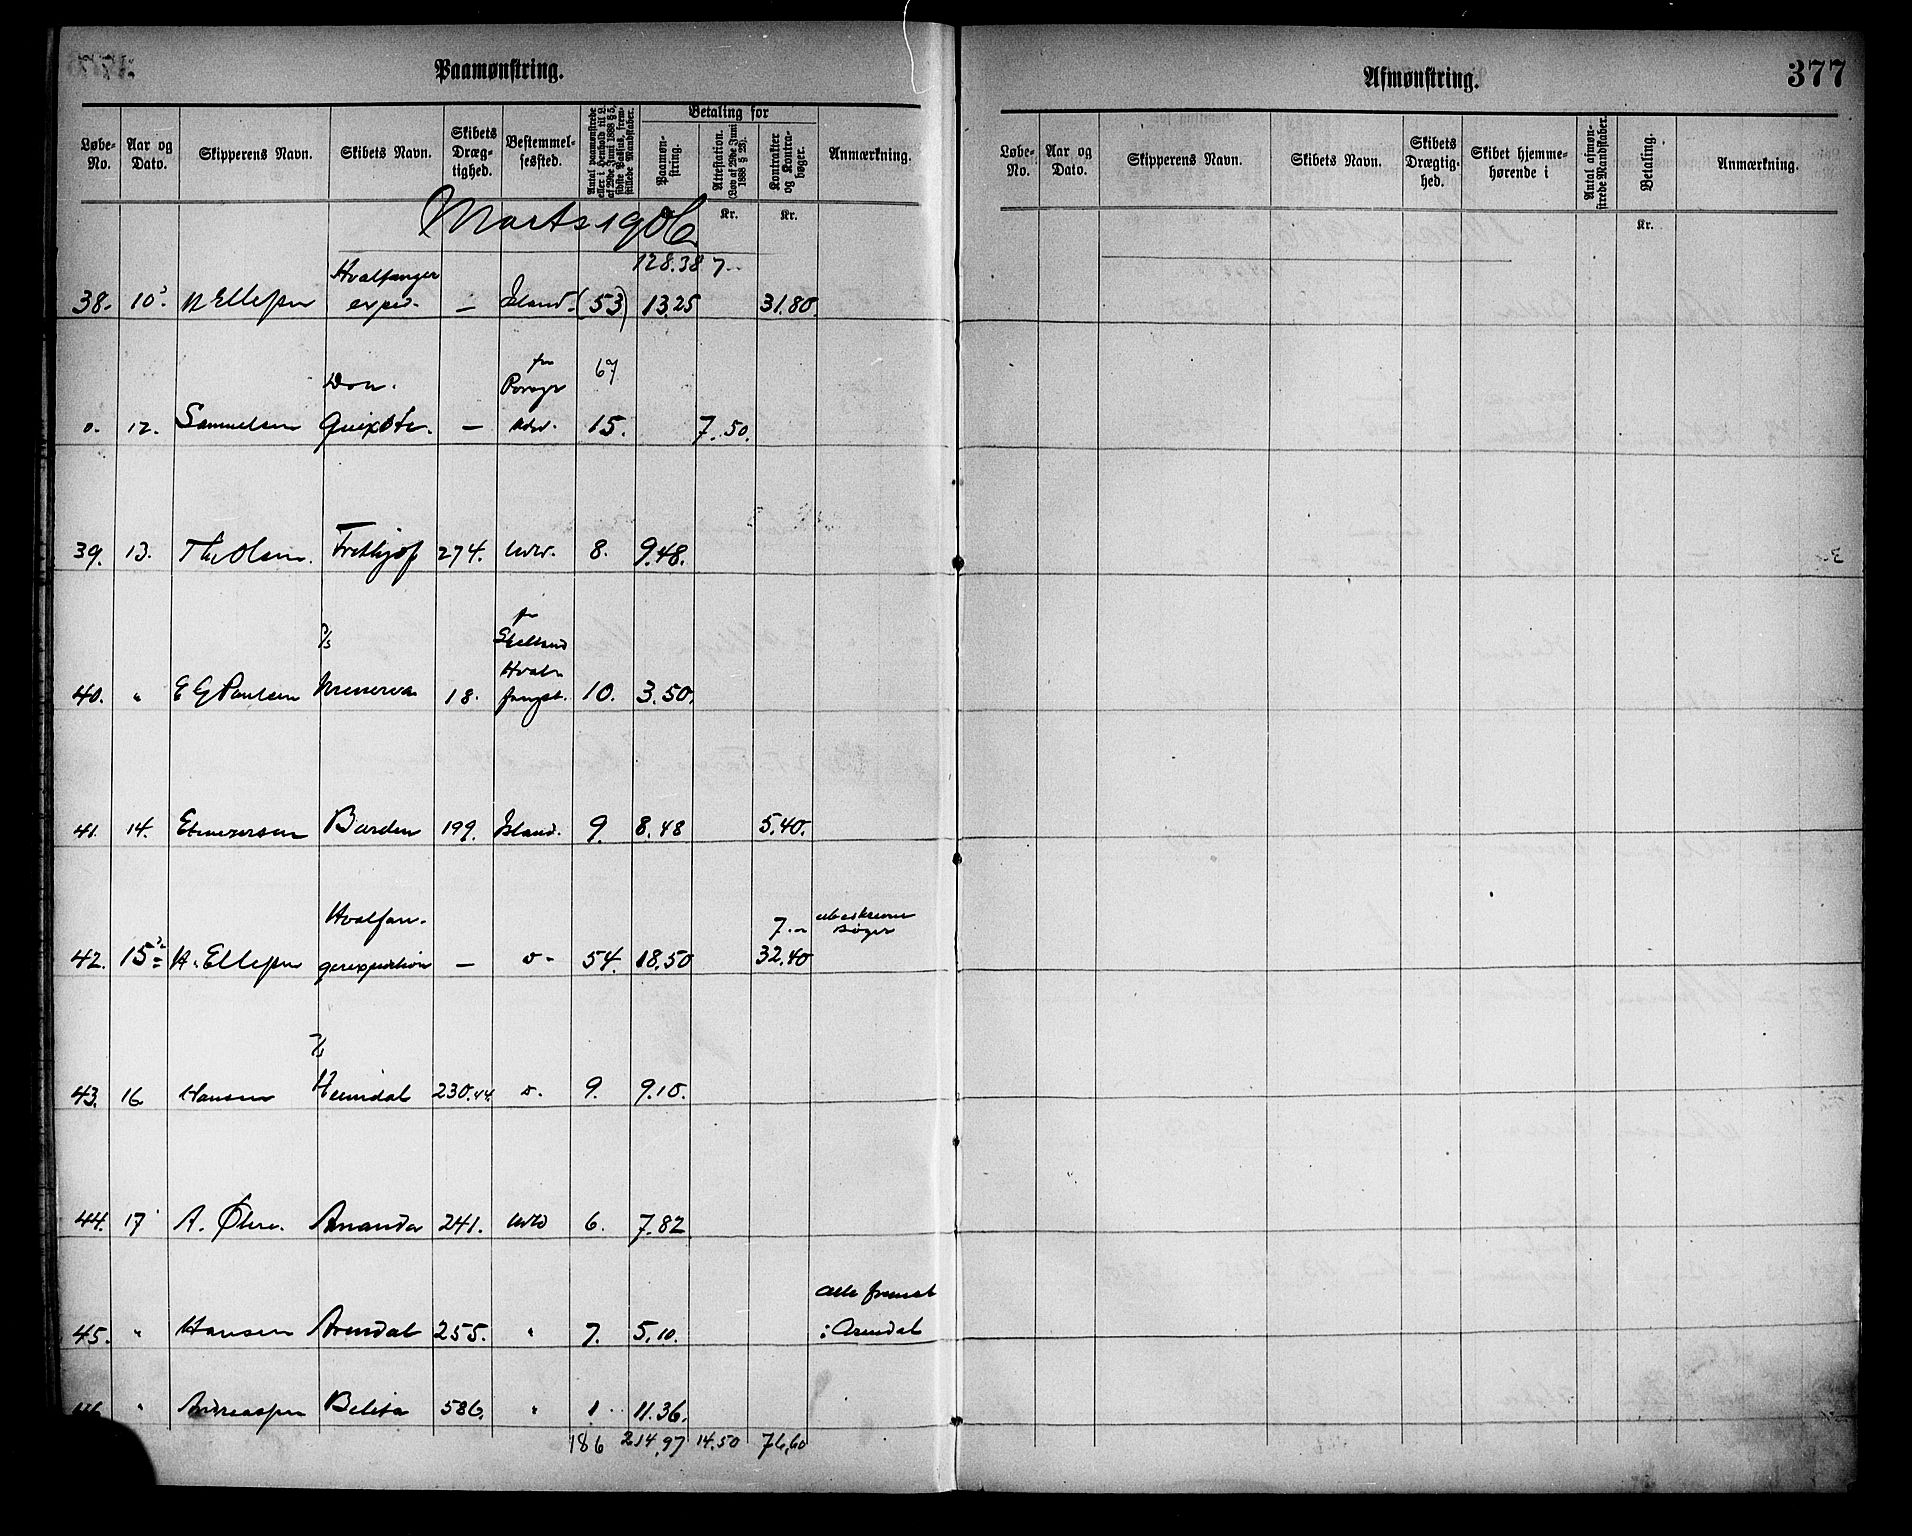 Paamønstring.
Løbe-No. Aar og Dato. Skipperens Navn. Skibets Navn. Skibets Dræg-tighed. Bestemmel-sessted. Antal paamønstrede eller i Henhold til L. af 29de Juni 1888 § 5, sidste Passus, frem-stillede Mandskaber. Betaling for Paamøn-string. Attestation. (Lov af 29de Juni 1888 § 28). Kontrakter og Kontra-bøger. Anmærkning.
Kr. Kr.
Marts 1906
128.38 7.-
38. 10/3 N Ellefsen Hvalfanger exped. — Island. (53) 13.25 31.80.
67
0. 12. Samuelsen Don Quixote. — 15. 7.50.
39. 13. Th Olsen. Frithjof 274. Udld. 8. 9.48.
40. " E G Paulsen S/s Minerva 18. Hval-fangst. 10. 3.50.
41. 14. Ebenezersen Barden 199. Island. 9. 8.48 5.40.
7.-
42. 15 H. Ellefsen Hvalfan-gerexpedition — 54. 18.50 32.40 Bøger
43. 16 Hansen Heimdal 230.44 9. 9.10.
44. 17 A. Ananda 241. Udld 6. 7.82
45. " Hansen Arendal 255. " 7. 5.10. alle fremst i Arendal
46. " Andreassen Belisa 586. " 1. 11.36.
186 214,97 14.50 76,60
Afmønstring.
377
Løbe-No. Aar og Dato. Skipperens Navn. Skibets Navn. Skibets Drægtig-hed. Skibet hjemme-hørende i Antal afmøn-strede Mandskaber. Betaling. Anmærkning.
Kr.